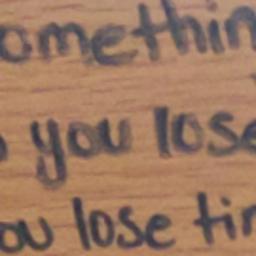 omethin
you lose
ou lose tim